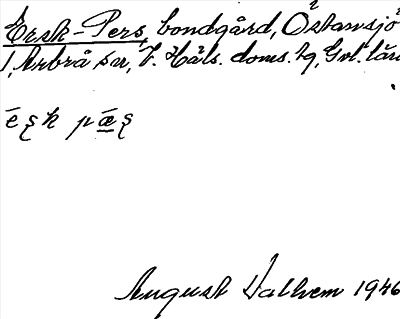 Ersk-Pers, bondgård, Östansjö
1, Arbrå sn, V. Häls. doms. hg, Gvl. län
é ʂ k p æ ʂ
August Vallvem 1946